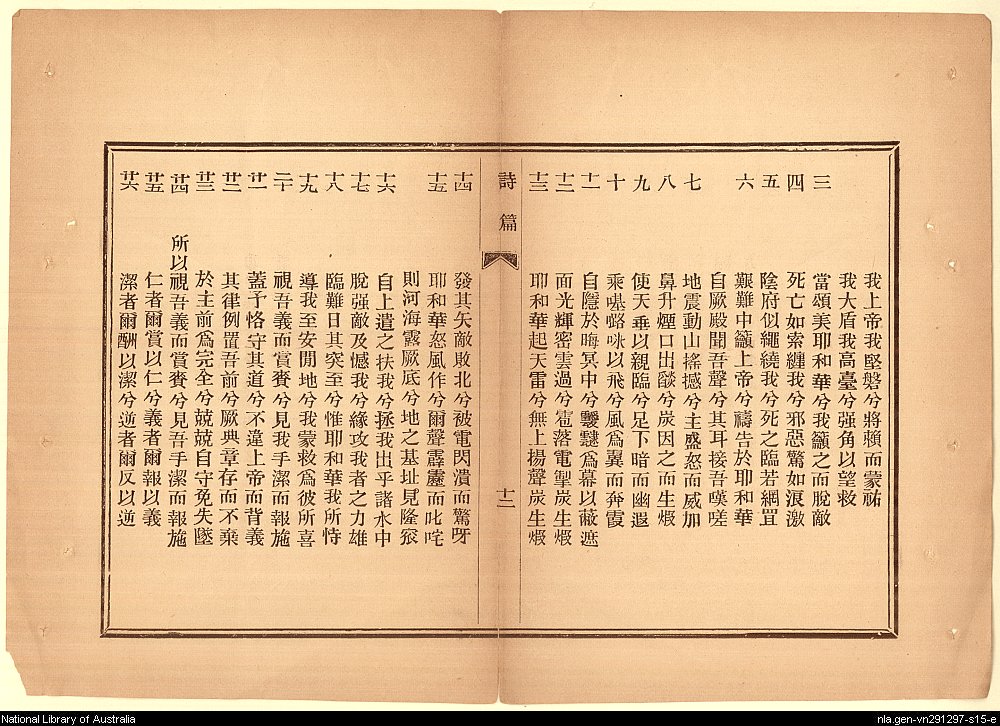 三 四 五 六 七 八 九 十 十一 十二 十三
我上帝我堅磐兮將賴而蒙祐
我大盾我高臺兮强角以望救
當頌美耶和華兮我籲之而脫敵
死亡如索纏我兮邪惡驚如浪激
陰府似繩繞我兮死之臨若網罝
艱難中籲上帝兮禱告於耶和華
自厥殿聞吾聲兮其耳接吾嘆嗟
地震動山搖撼兮主盛怒而威加
鼻升煙口出燄兮炭因之而生煆
使天垂以親臨兮足下暗而幽遐
乘𠼻嚕咪以飛兮風爲翼而奔霞
自隱於晦冥中兮靉靆爲幕以蔽遮
面光輝密雲過兮雹落電掣炭生煆
耶和華起天雷兮無上揚聲炭生煆
詩篇
十二
十四 十五 十六 十七 十八 十九 二十 廿一 廿二 廿三 廿四 廿五 廿六
發其矢敵敗北兮被電閃潰而驚呀
耶和華怒風作兮爾聲霹靂而叱咤
則河海露厥底兮地之基址見隆窊
自上遣之扶我兮拯我出乎諸水中
脫强敵及憾我兮緣攻我者之力雄
臨難日其突至兮惟耶和華我所恃
導我至安閒地兮我蒙救爲彼所喜
視吾義而賞賚兮見我手潔而報施
蓋予恪守其道兮不違上帝而背義
其律例置吾前兮厥典章存而不棄
於主前爲完全兮兢兢自守免失墜
所以視吾義而賞賚兮見吾手潔而報施
仁者爾賞以仁兮義者爾報以義
潔者爾酬以潔兮逆者爾反以逆
National Library of Australia
nla.gen-vn291297-s15-e